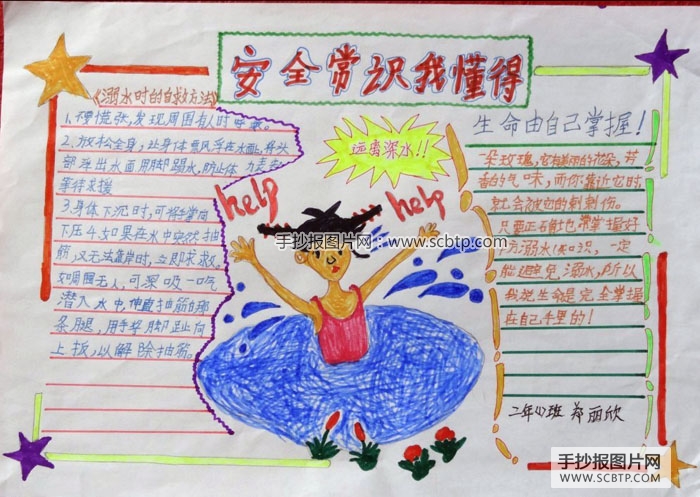 安全常识我懂得
《溺水时的自救方法》
1.不慌张,发现周围有人时呼救。
2.放松全身,让身体漂浮在水面上,将头
部浮出水面用脚踢水,防止体力丧失
等待求援
3.身体下沉时,可将手掌向
下压4.如果在水中突然抽
筋,又无法靠岸时,立即求救,
如周围无人,可深吸一口气
潜入水中,伸直抽筋的那
条腿,用手将脚趾向
上扳,以解除抽筋。
远离深水!!
help
help
手抄报图片网:www.scbtp.com
生命由自己掌握!
朵玫瑰,它有美丽的花朵,芳
香的气味,而你靠近它时
就会被它的刺刺伤。
只要正确地掌握好
防溺水知识,一定
能避免溺水,所以
我说生命是完全掌握
在自己手里的!
郑丽欣
手抄报图片网
WWW.SCBTP.COM